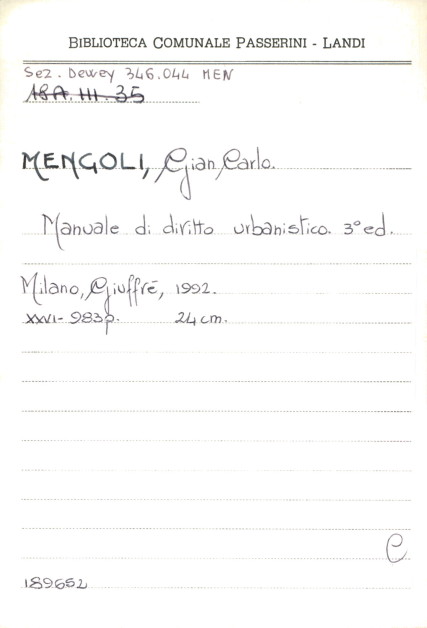 BIBLIOTECA COMUNALE PASSERINI - LANDI
Sez. Dewey 346.044 MEN
18A. III. 35
MENGOLI, Gian Carlo.
Manuale di diritto urbanistico. 3° ed.
Milano, Giuffrè, 1992.
XXVI - 983 p. 24 cm.
C
189652